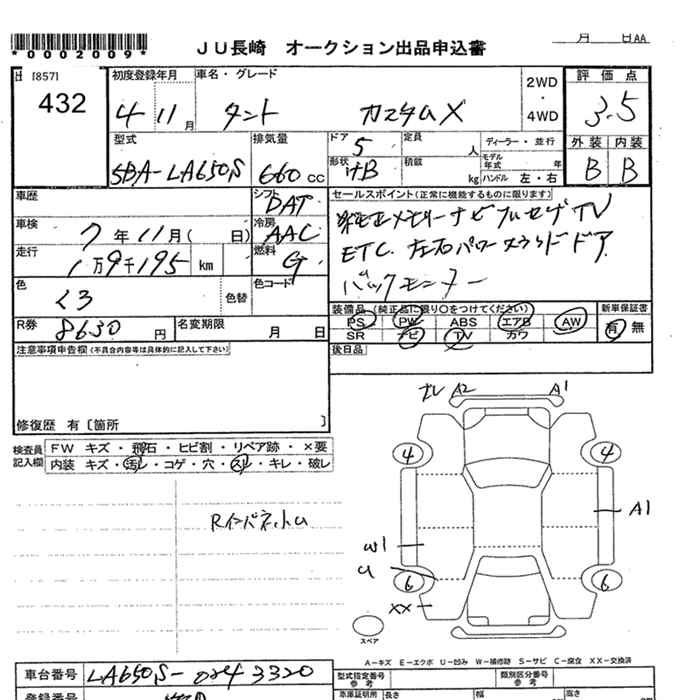 *0002009*
JU長崎 オークション出品申込書
月 日AA
[857]
432
初度登録年月 車名・グレード
4 11月 タント カスタムX
2WD・4WD
評価点
3.5
外装 内装
B B
型式 排気量 ドア 定員 ディーラー・並行
5 人
SBA-LA650S 660cc
形状 積載 モデル年式 年
HB kg ハンドル 左・右
車歴 シフト DAT
車検 7年11月( 日) 冷房 AAC
走行 1万9千195 km 燃料 G
色 クロ 色替 色コード
R券 8630円 名変期限 月 日
セールスポイント(正常に機能するものに限ります)
純正メモリーナビフルセグTV
ETC. 左右パワースライドドア.
バックモニター
装備品(純正品に限り○をつけてください) 新車保証書
PS PW ABS エアB AW 有 無
SR ナビ TV カワ
後日品
注意事項申告欄(不具合内容等は具体的に記入して下さい)
修復歴 有〔箇所 〕
検査員記入欄
FW キズ・飛石・ヒビ割・リペア跡・×要
内装 キズ・汚レ・コゲ・穴・スレ・キレ・破レ
RインパネホU
A2 A1
4 4
A1
W1
U
6 6
XX
スペア
A-キズ E-エクボ U-凹み W-補修跡 S-サビ C-腐食 XX-交換済
車台番号 LA650S-0243320
登録番号
型式指定番号 参考 類別区分番号 参考
車庫証明所 長さ 幅 高さ